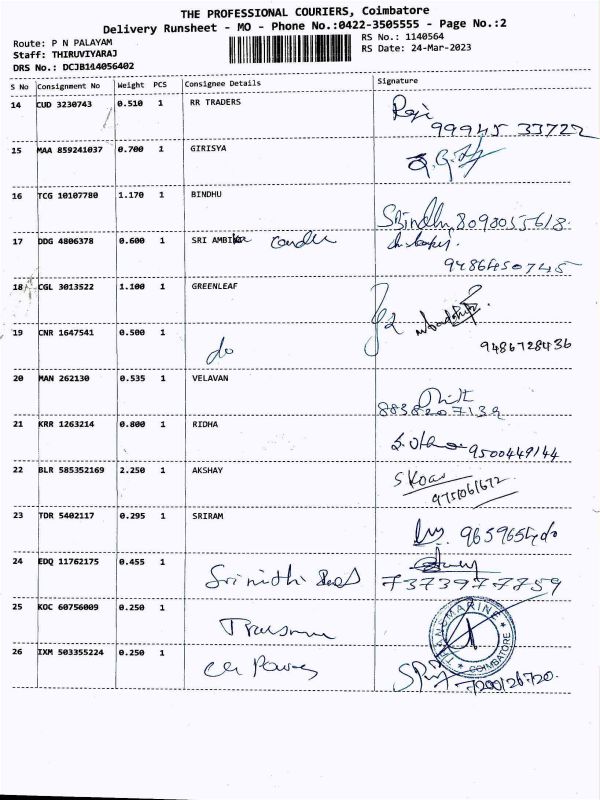 THE PROFESSIONAL COURIERS, Coimbatore
Delivery Runsheet - MO - Phone No.:0422-3505555 - Page No.:2
Route: P N PALAYAM
RS No.: 1140564
Staff: THIRUVIYARAJ
RS Date: 24-Mar-2023
DRS No.: DCJB114056402
S No Consignment No Weight PCS Consignee Details Signature
14 CUD 3230743 0.510 1 RR TRADERS
99945 33722
15 MAA 859241037 0.700 1 GIRISYA
16 TCG 10107780 1.170 1 BINDHU
SBindhu, 8098055618
17 DDG 4806378 0.600 1 SRI AMBIKA
9486450745
18 CGL 3013522 1.100 1 GREENLEAF
19 CNR 1647541 0.500 1 do
9486728436
20 MAN 262130 0.535 1 VELAVAN
8838207139
21 KRR 1263214 0.800 1 RIDHA
9500449144
22 BLR 585352169 2.250 1 AKSHAY
9751061672
23 TDR 5402117 0.295 1 SRIRAM
24 EDQ 11762175 0.455 1 Srinidhi
7373977759
25 KOC 60756009 0.250 1
TRANSMARINE * COIMBATORE *
26 IXM 503355224 0.250 1
7200126720